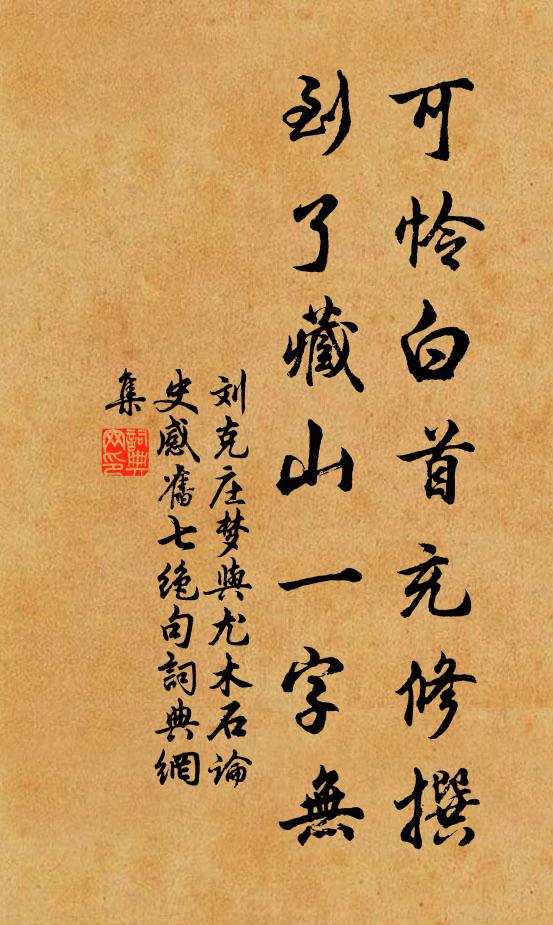 可怜白首充修撰
到了藏山一字無
刘克庄梦與尤木石論
史感舊七绝句詞典網
集
詞典网印